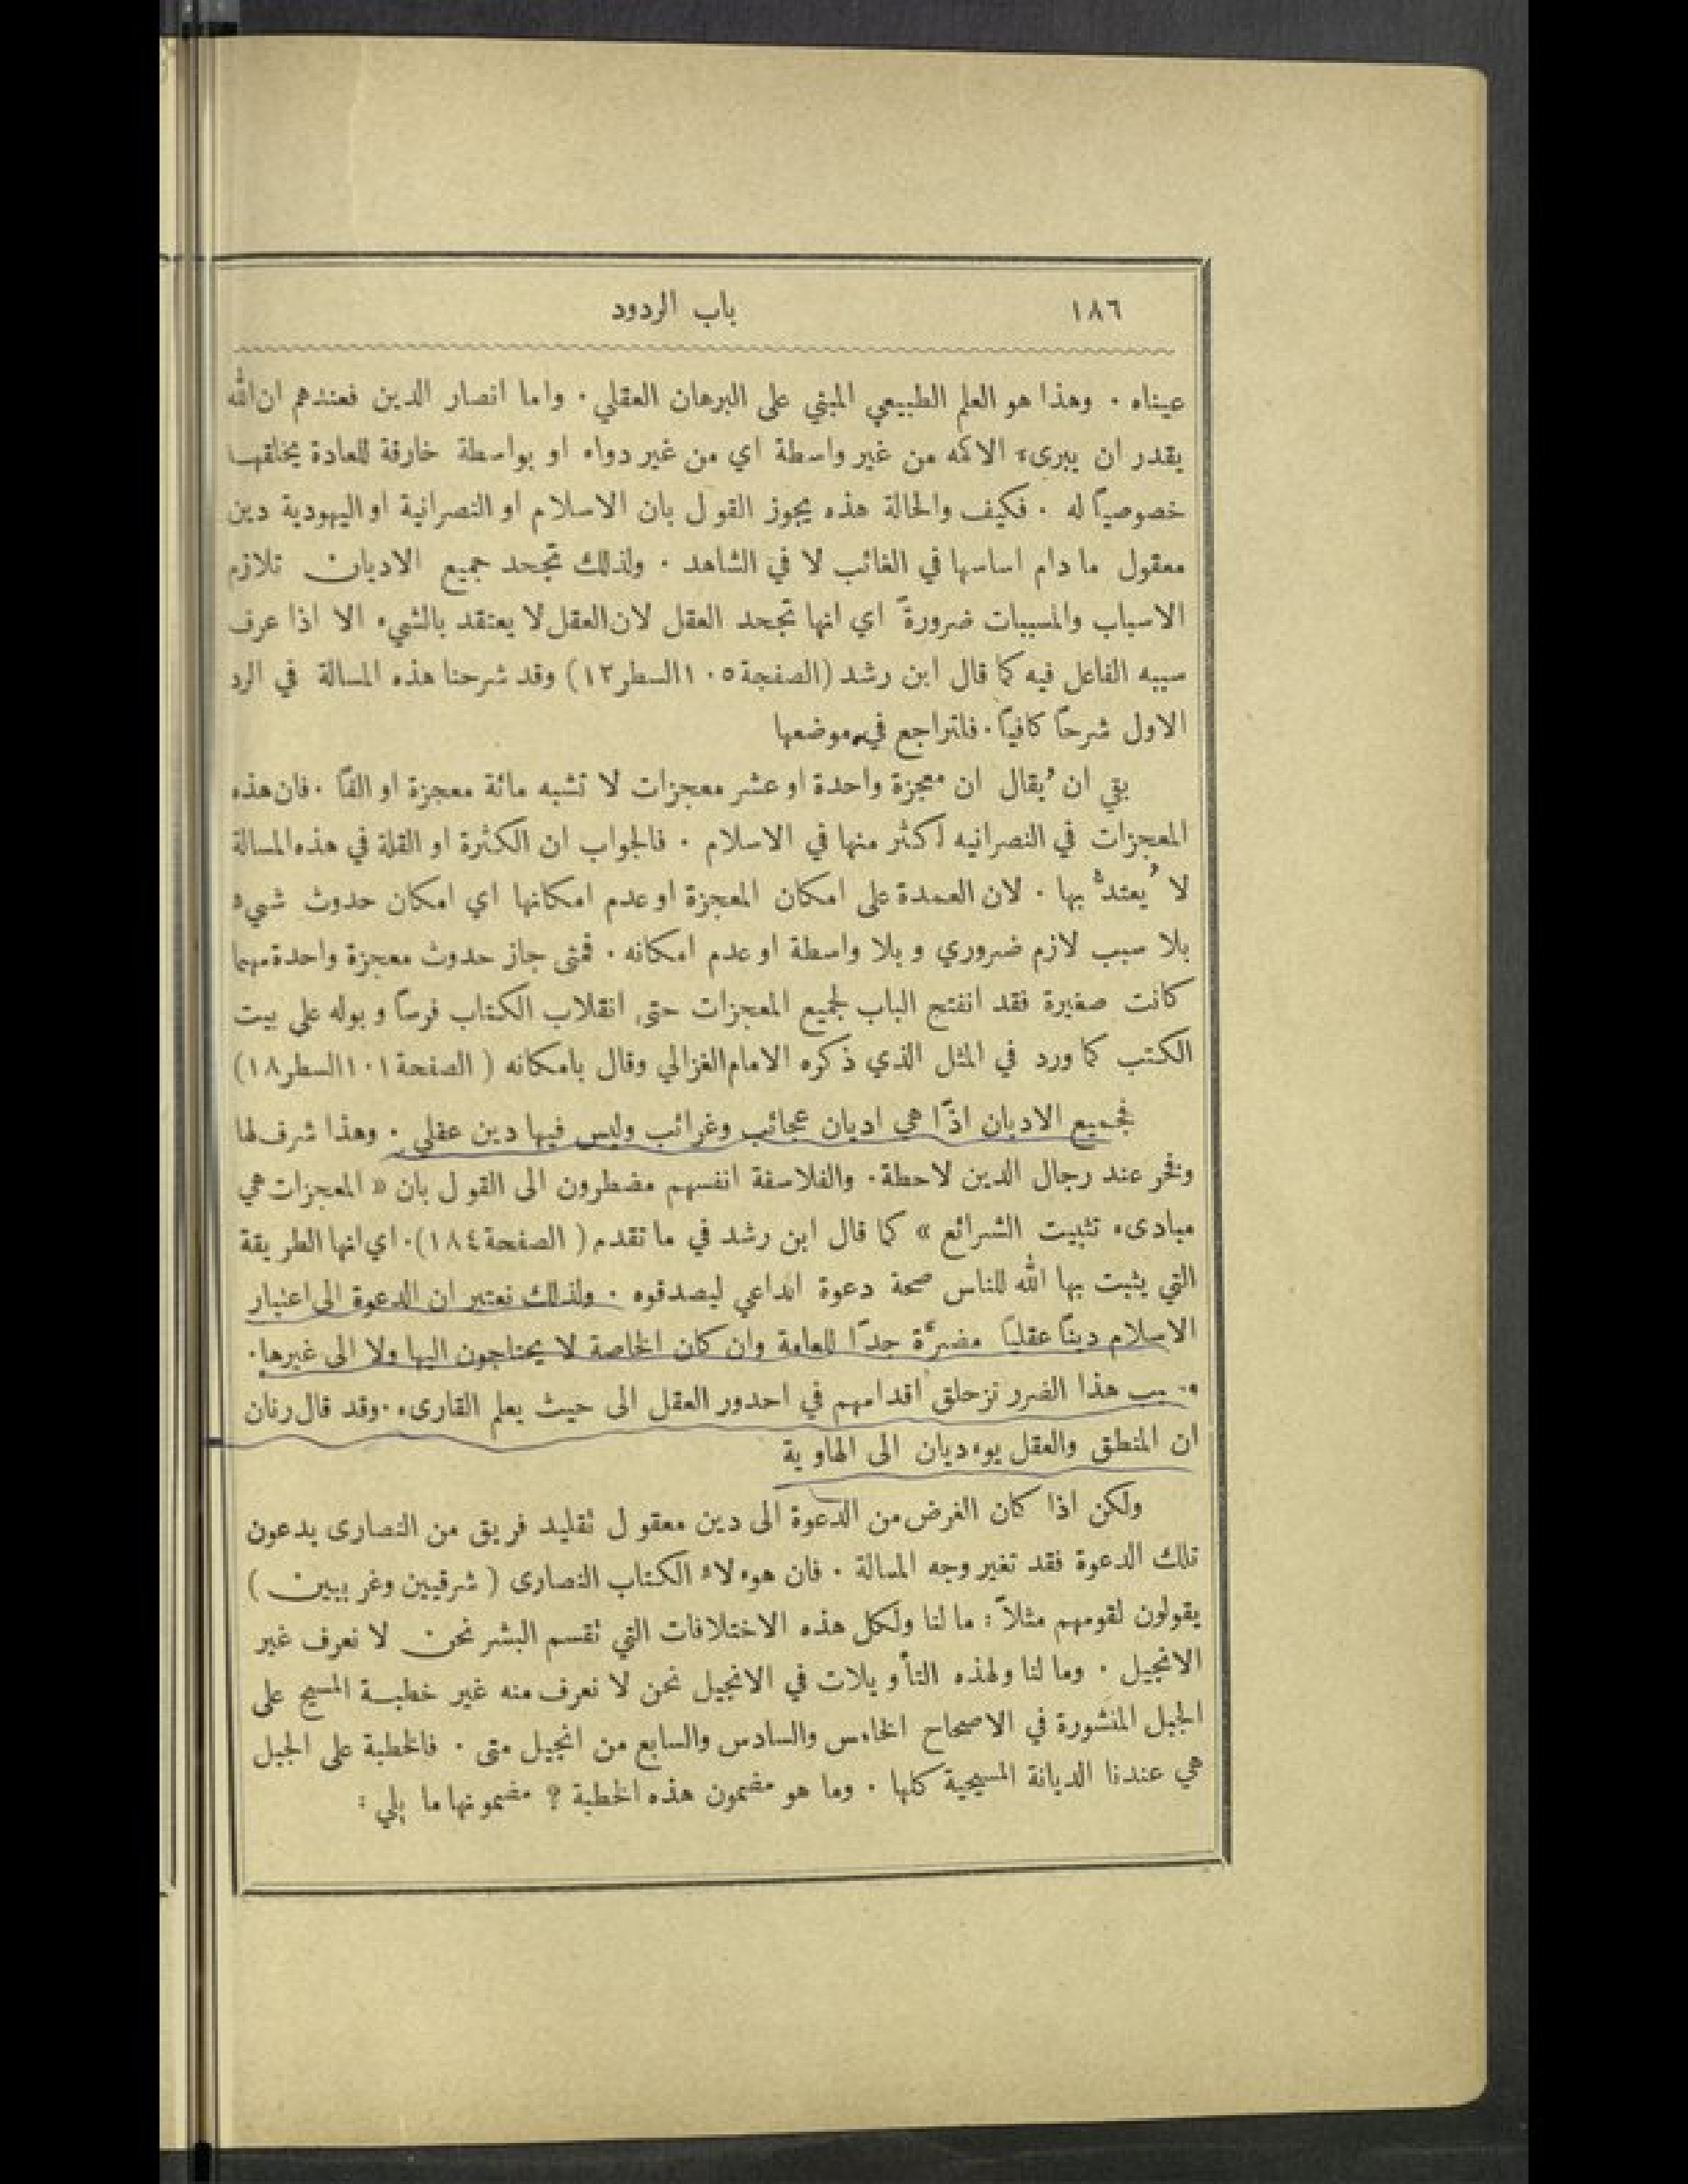 ١٨٦
باب الردود
عيناه . وهذا هو العلم الطبيعي المبني على البرهان العقلي . واما انصار الدين فعندهم ان الله
يقدر ان يبرىء الاكمه من غير واسطة اي من غير دواء او بواسطة خارقة للعادة يخلقها
خصوصيًا له . فكيف والحالة هذه يجوز القول بان الاسلام او النصرانية او اليهودية دين
معقول ما دام اساسها في الغائب لا في الشاهد . ولذلك تجحد جميع الاديان تلازم
الاسباب والمسببات ضرورةً اي انها تجحد العقل لان العقل لا يعتقد بالشيء الا اذا عرف
سببه الفاعل فيه كما قال ابن رشد (الصفحة ١٠٥ السطر ١٢) وقد شرحنا هذه المسالة في الرد
الاول شرحًا كافيًا . فلتراجع في موضعها
بقي ان يُقال ان معجزة واحدة او عشر معجزات لا تشبه مائة معجزة او الفًا . فان هذه
المعجزات في النصرانيه اكثر منها في الاسلام . فالجواب ان الكثرة او القلة في هذه المسالة
لا يُعتدُّ بها . لان العمدة على امكان المعجزة او عدم امكانها اي امكان حدوث شيء
بلا سبب لازم ضروري وبلا واسطة او عدم امكانه . فمتى جاز حدوث معجزة واحدة مهما
كانت صغيرة فقد انفتح الباب لجميع المعجزات حتى انقلاب الكتاب فرسًا وبوله على بيت
الكتب كما ورد في المثل الذي ذكره الامام الغزالي وقال بامكانه ( الصفحة ١٠١ السطر ١٨)
فجميع الاديان اذًا هي اديان عجائب وغرائب وليس فيها دين عقلي . وهذا شرف لها
وفخر عند رجال الدين لا حطة . والفلاسفة انفسهم مضطرون الى القول بان « المعجزات هي
مبادىء تثبيت الشرائع » كما قال ابن رشد في ما تقدم ( الصفحة ١٨٤) . اي انها الطريقة
التي يثبت بها الله للناس صحة دعوة الداعي ليصدقوه . ولذلك نعتبر ان الدعوة الى اعتبار
الاسلام دينًا عقليًا مضرَّة جدًا للعامة وان كان الخاصة لا يحتاجون اليها ولا الى غيرها .
هذا الضرر تزحلق اقدامهم في احدور العقل الى حيث يعلم القارىء . وقد قال رنان
ان المنطق والعقل يوءديان الى الهاوية
ولكن اذا كان الغرض من الدعوة الى دين معقول تقليد فريق من النصارى يدعون
تلك الدعوة فقد تغير وجه المسالة . فان هوءلاء الكتاب النصارى ( شرقيين وغربيين )
يقولون لقومهم مثلاً : ما لنا ولكل هذه الاختلافات التي تقسم البشر نحن لا نعرف غير
الانجيل . وما لنا ولهذه التأويلات في الانجيل نحن لا نعرف منه غير خطبة المسيح على
الجبل المنشورة في الاصحاح الخامس والسادس والسابع من انجيل متى . فالخطبة على الجبل
هي عندنا الديانة المسيحية كلها . وما هو مضمون هذه الخطبة ؟ مضمونها ما يلي :